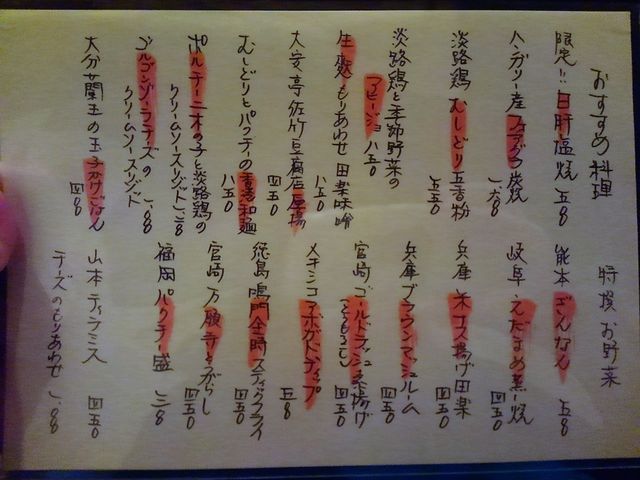 おすすめ料理
限定!! 白肝塩焼 五80
ハンガリー産フォアグラ炭焼 一、六80
淡路鶏むしどり五香粉 五五0
淡路鶏と季節野菜の
アヒージョ 八五0
生麩もりあわせ 田楽味噌 八五0
大安亭佐竹豆腐店厚揚 四五0
むしどりとパクチィの香港和麺 八五0
ポルチーニ茸の子と淡路鶏の
クリームソースリゾット 一、二80
ゴルゴンゾーラチーズの
クリームソースリゾット 一、080
大分蘭王の玉子かけごはん 四80
特撰お野菜
熊本ぎんなん 五80
岐阜えだまめ墨焼 四五0
兵庫ネナス揚げ田楽 四五0
兵庫ブラウンマッシュルーム 四五0
宮崎ゴールドラッシュ素揚げ
(とうもろこし) 四五0
メキシコアボガドディップ 五80
徳島鳴門金時スティックフライ 四五0
宮崎万願寺とうがらし 四五0
福岡パクチー盛 三80
山本ティラミス 四五0
チーズのもりあわせ 一、080